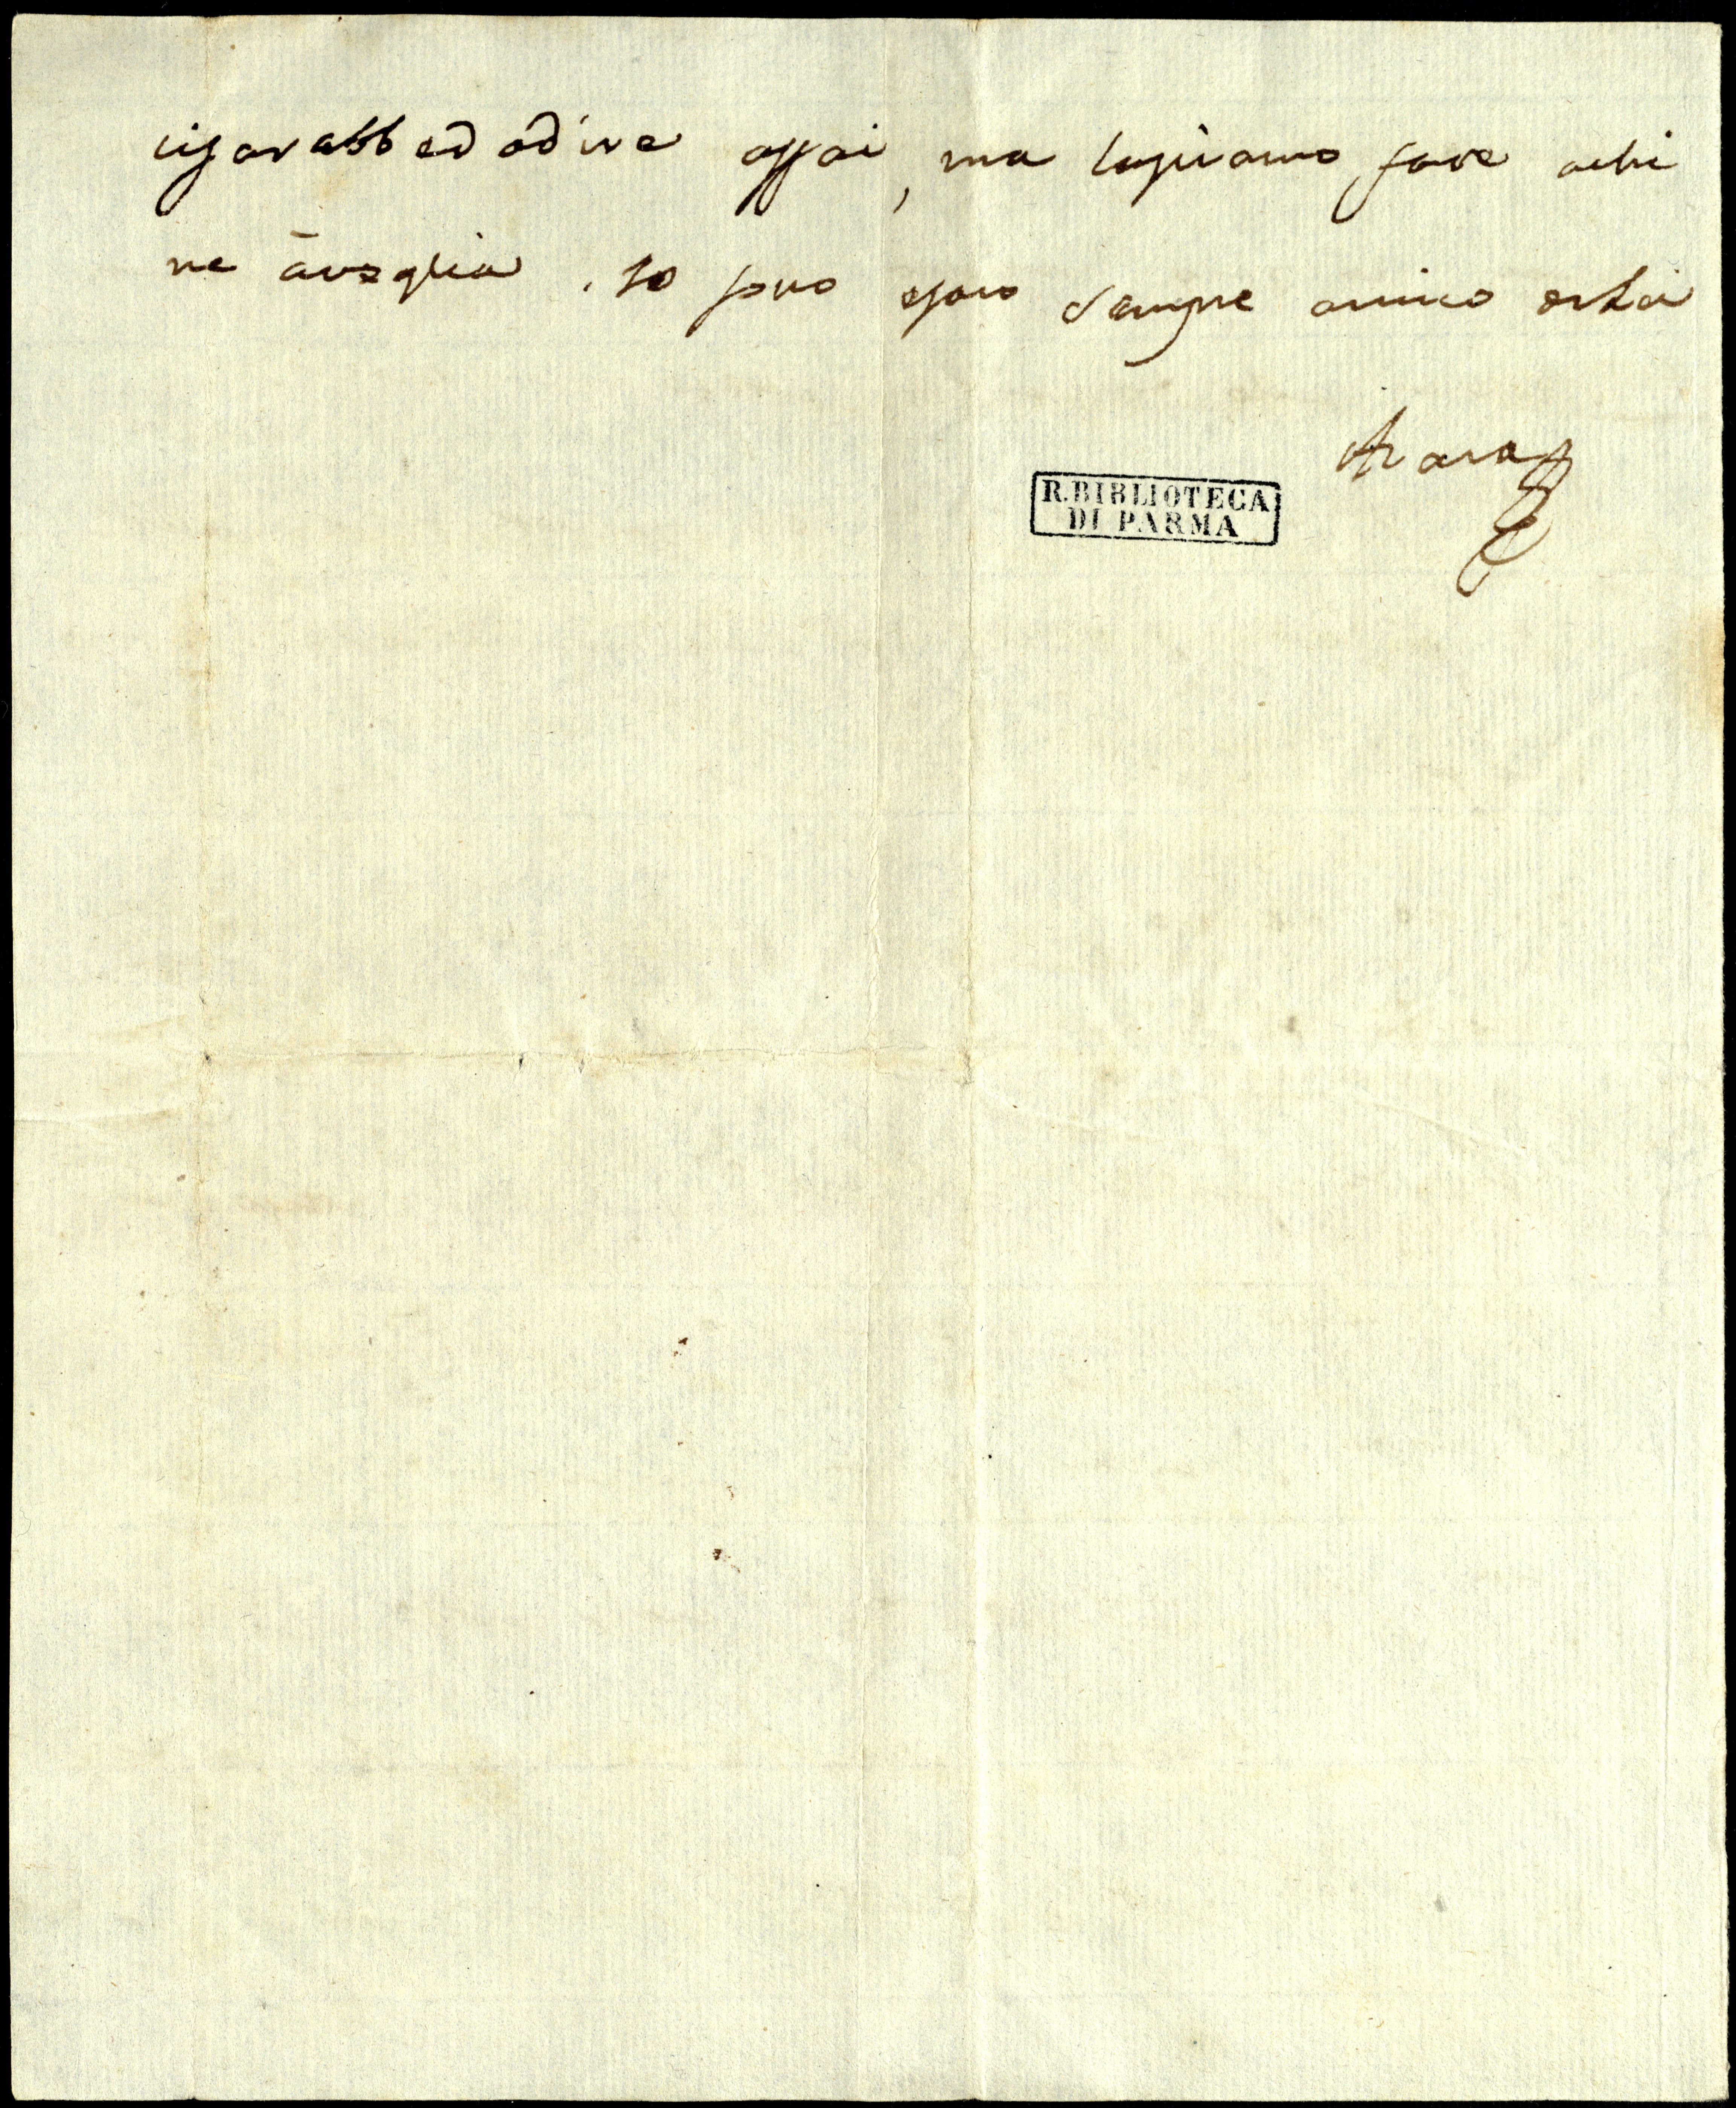 cisarabbed adire assai, ma lassiamo fare achi
ne āvoglia. Io sono esaro sempre amico esta
Azara
R. BIBLIOTECA
DI PARMA